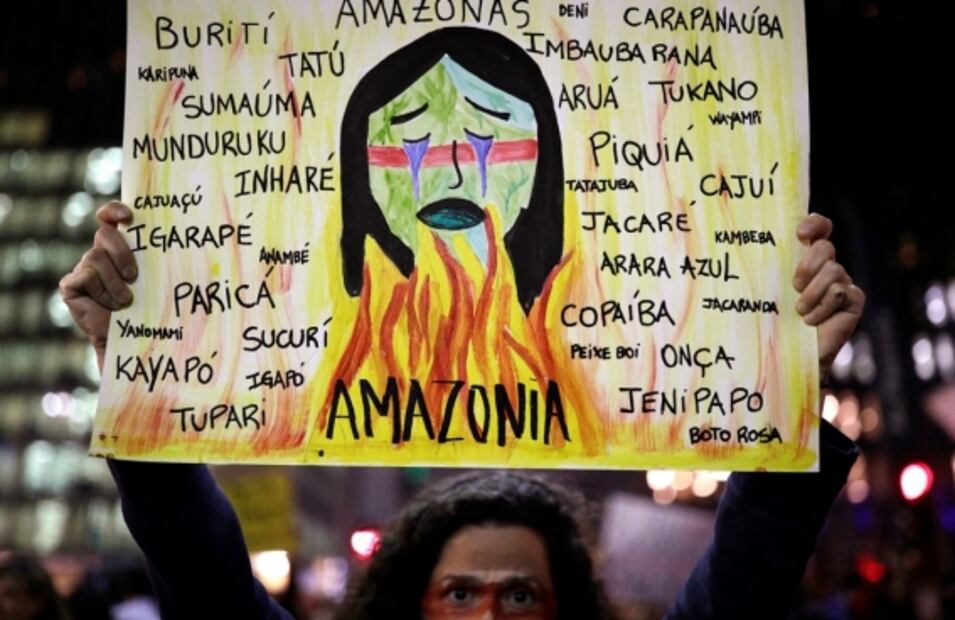 AMAZONAS
BURITÍ
KARIPUNA
TATÚ
SUMAÚMA
MUNDURUKU
INHARÉ
CAJUAÇÚ
IGARAPÉ
ANAMBÉ
PARICÁ
YANOMAMI
SUCURÍ
KAYAPÓ
IGAPÓ
TUPARI
AMAZONIA
DENI
CARAPANAÚBA
IMBAUBARANA
ARUÁ
TUKANO
WAYAMPI
PIQUIÁ
TATAJUBA
CAJUÍ
JACARÉ
KAMBEBA
ARARA AZUL
COPAÍBA
JACARANDA
PEIXE BOI
ONÇA
JENIPAPO
BOTO ROSA